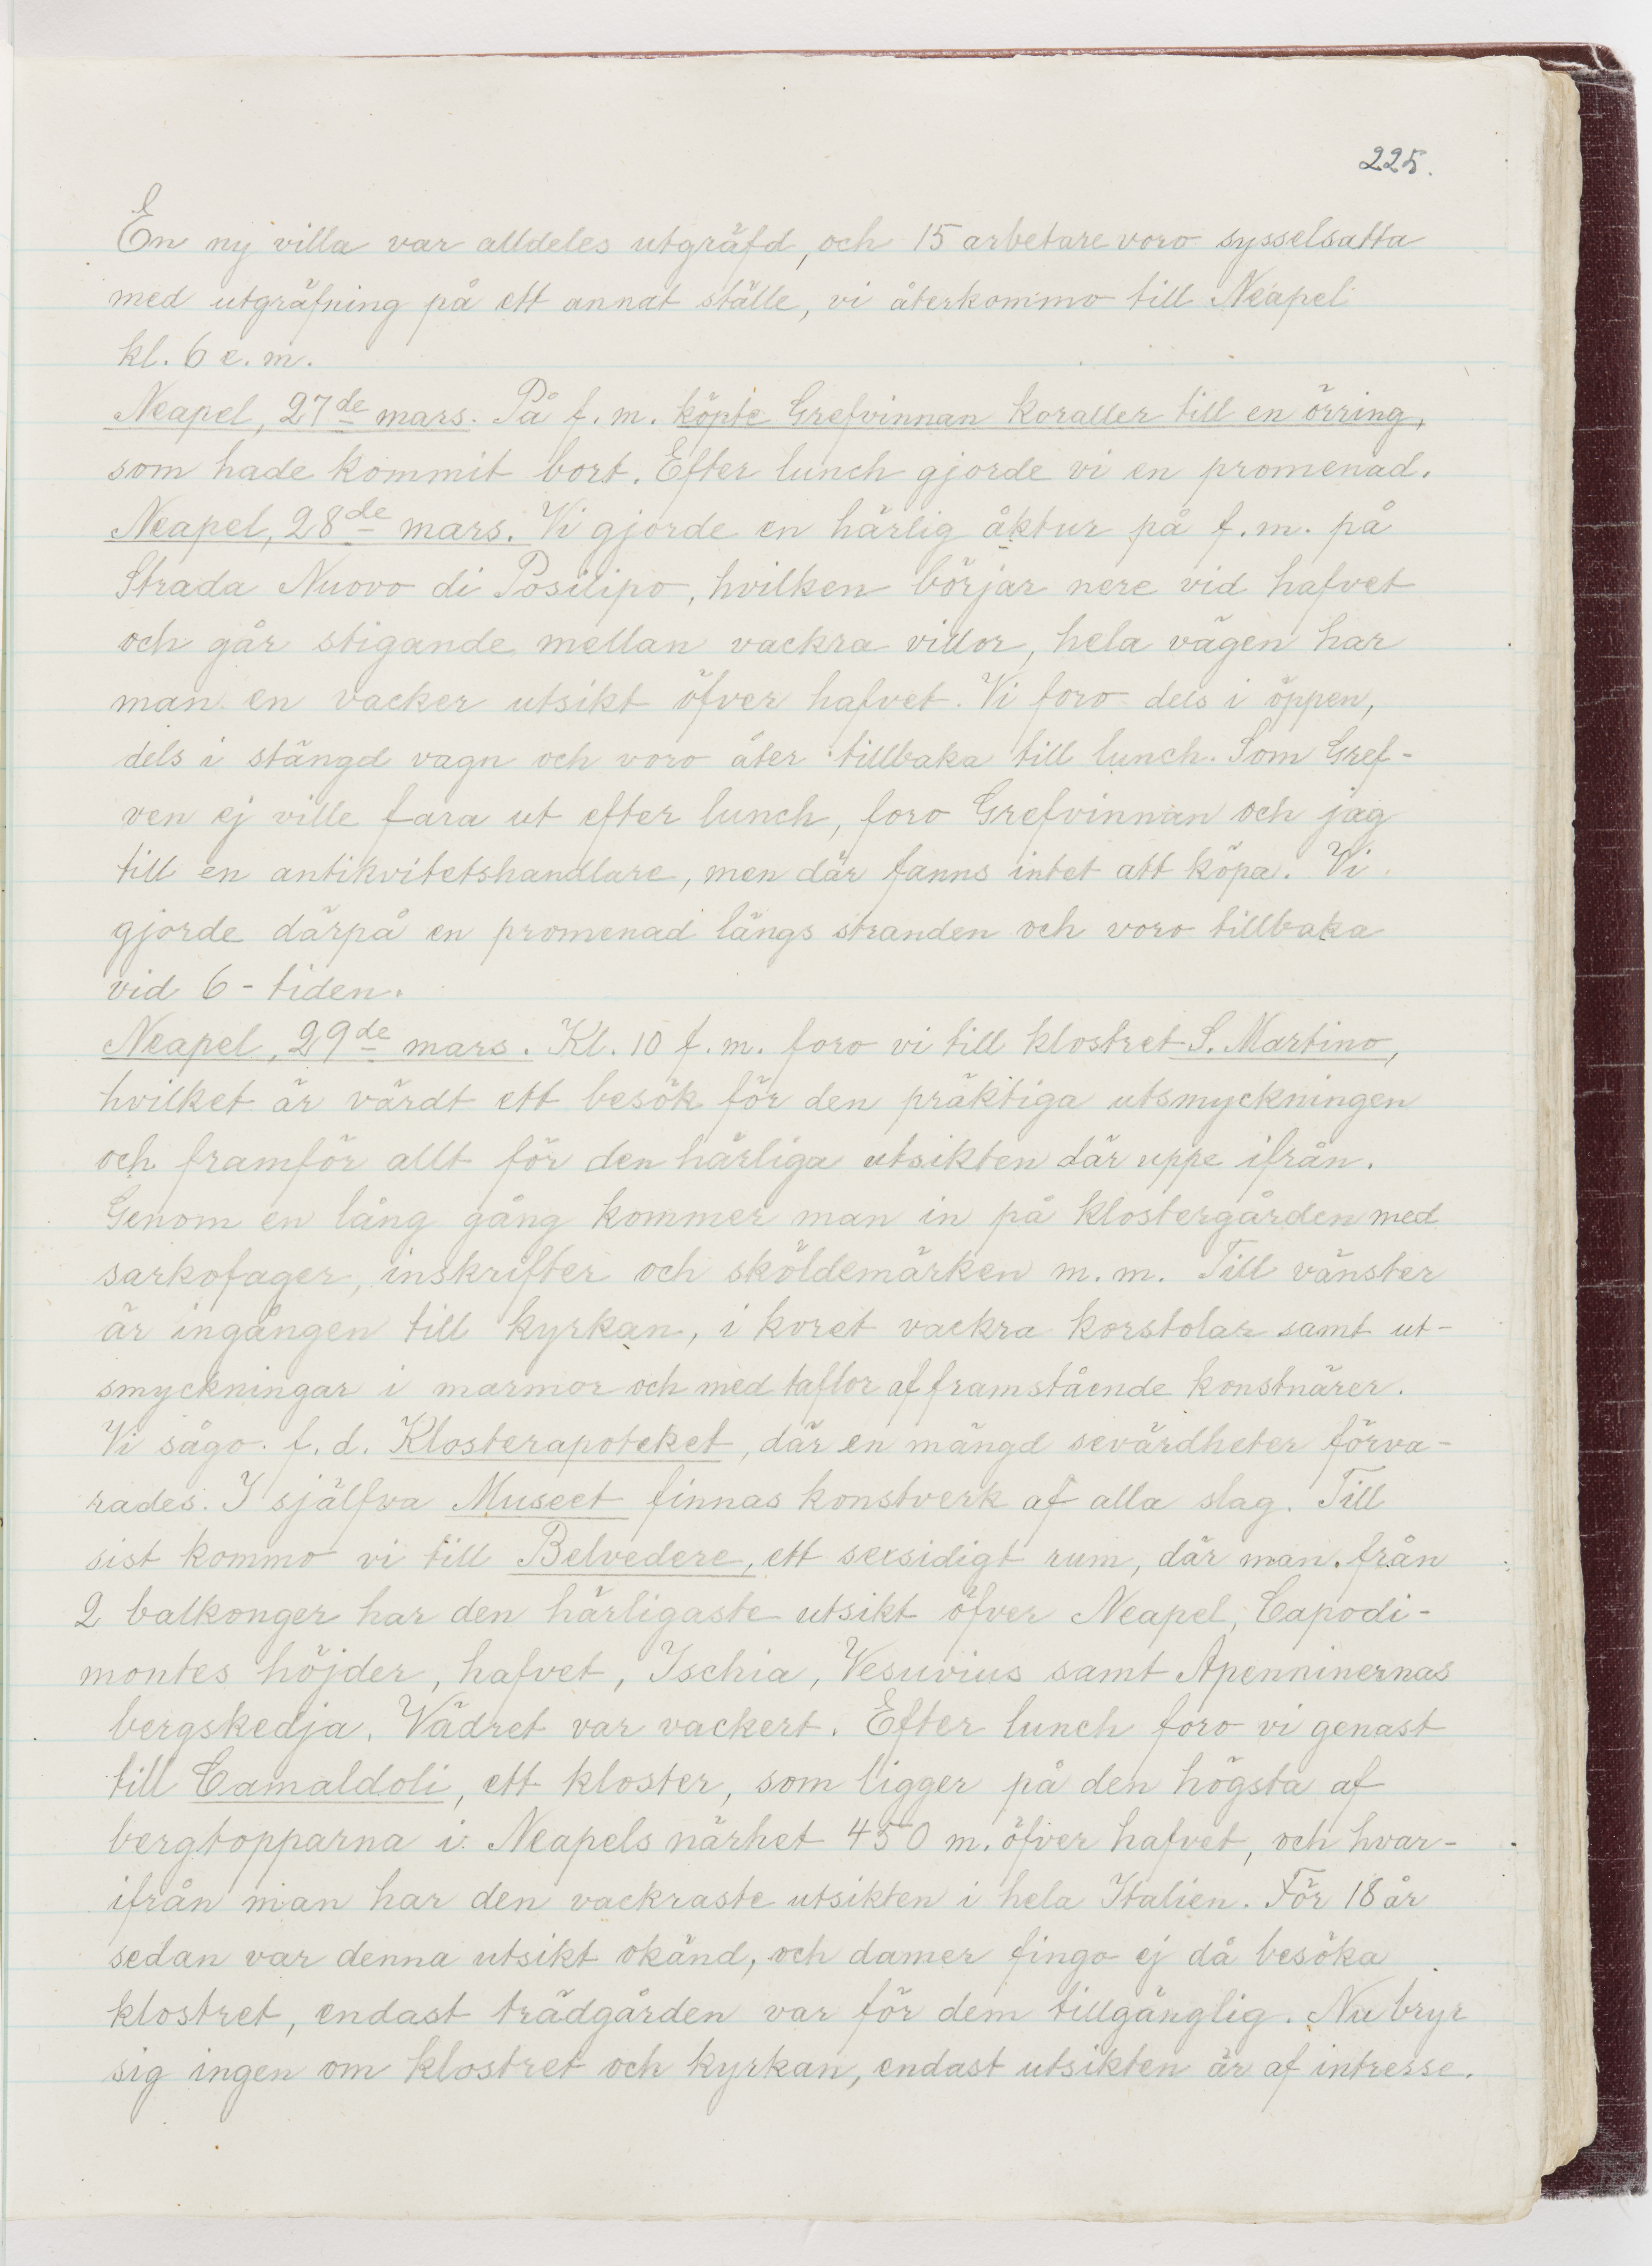 225.
En ny villa var alldeles utgräfd, och 15 arbetare voro sysselsatta
med utgräfning på ett annat ställe, vi återkommo till Neapel
kl. 6 e. m.
Neapel, 27de mars. På f. m. köpte Grefvinnan koraller till en örring,
som hade kommit bort. Efter lunch gjorde vi en promenad.
Neapel, 28de mars. Vi gjorde en härlig åktur på f. m. på
Strada Nuovo di Posilipo, hvilken börjar nere vid hafvet
och går stigande mellan vackra villor, hela vägen har
man en vacker utsikt öfver hafvet. Vi foro dels i öppen,
dels i stängd vagn och voro åter tillbaka till lunch. Som Gref-
ven ej ville fara ut efter lunch, foro Grefvinnan och jag
till en antikvitetshandlare, men där fanns intet att köpa. Vi
gjorde därpå en promenad längs stranden och voro tillbaka
vid 6-tiden.
Neapel, 29de mars. Kl. 10 f. m. foro vi till klostret S. Martino,
hvilket är värdt ett besök för den präktiga utsmyckningen
och framför allt för den härliga utsikten där uppe ifrån.
Genom en lång gång kommer man in på klostergården med
sarkofager, inskrifter och sköldemärken m. m. Till vänster
är ingången till kyrkan, i koret vackra korstolar samt ut-
smyckningar i marmor och med taflor af framstående konstnärer.
Vi sågo f. d. Klosterapoteket, där en mängd sevärdheter förva-
rades. I själfva Museet finnas konstverk af alla slag. Till
sist kommo vi till Belvedere, ett sexsidigt rum, där man från
2 balkonger har den härligaste utsikt öfver Neapel, Capodi-
montes höjder, hafvet, Ischia, Vesuvius samt Apenninernas
bergskedja. Vädret var vackert. Efter lunch foro vi genast
till Camaldoli, ett kloster, som ligger på den högsta af
bergtopparna i Neapels närhet 450 m. öfver hafvet, och hvar-
ifrån man har den vackraste utsikten i hela Italien. För 18 år
sedan var denna utsikt okänd, och damer fingo ej då besöka
klostret, endast trädgården var för dem tillgänglig. Nu bryr
sig ingen om klostret och kyrkan, endast utsikten är af intresse.